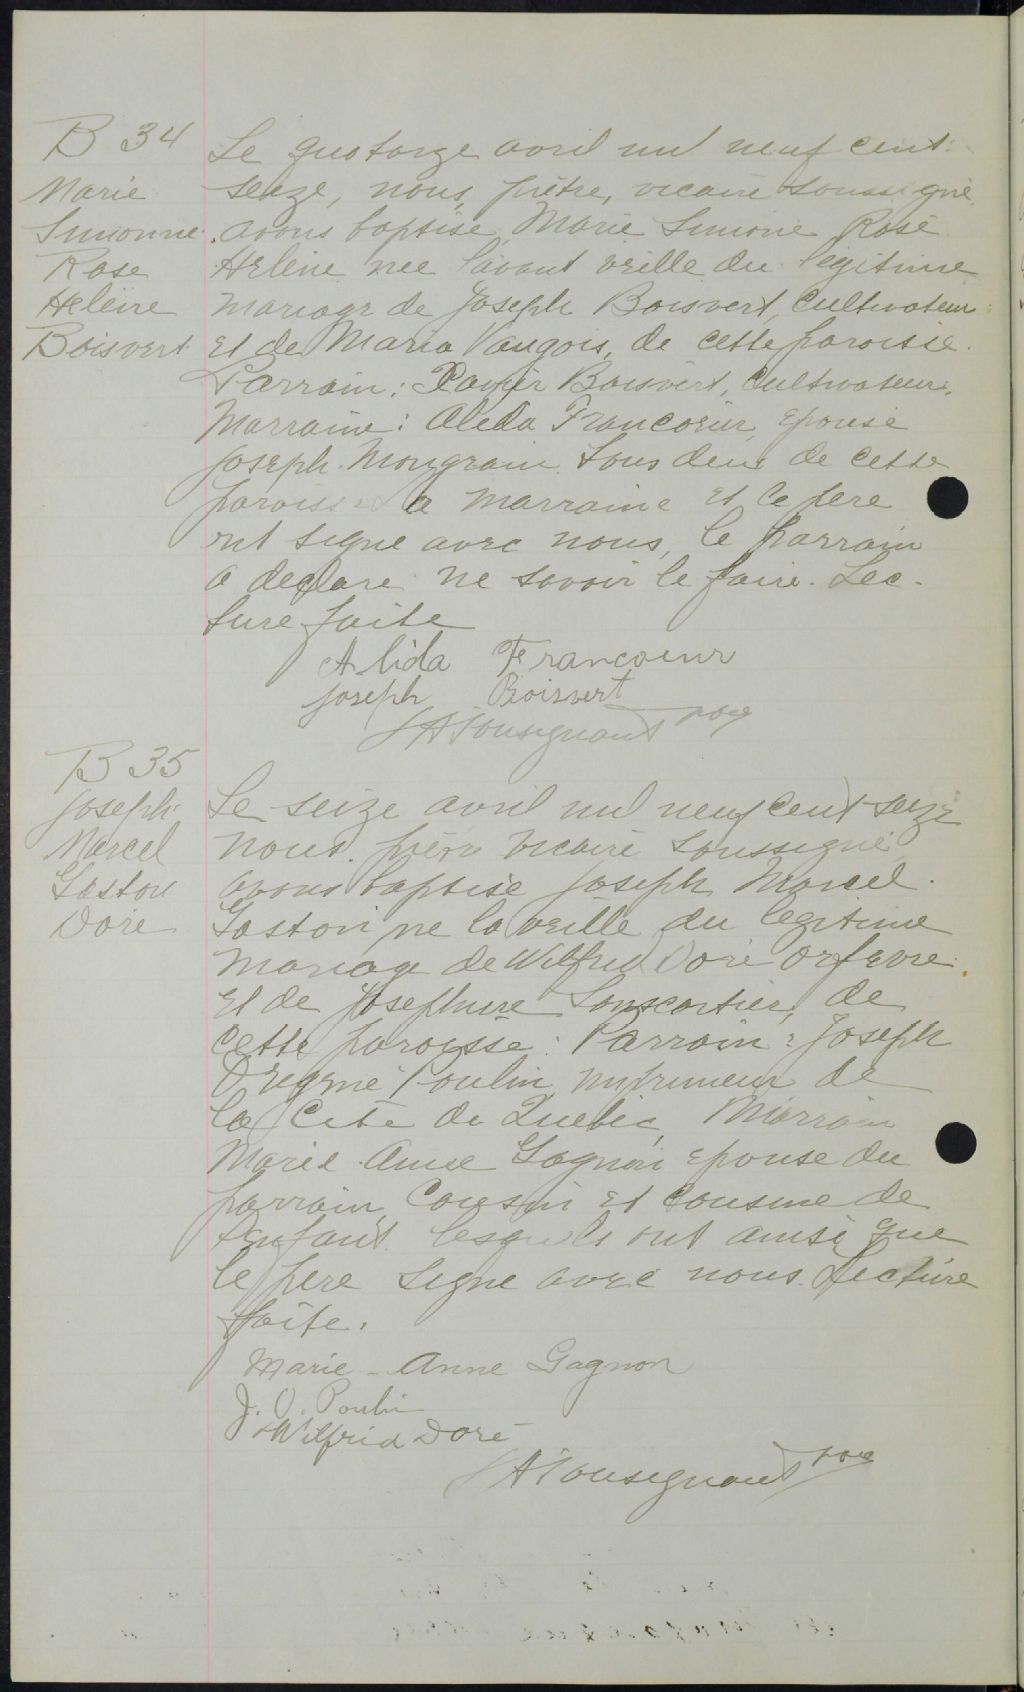 B 34
Marie
Simonne
Rose
Helène
Boisvert
Le quatorze avril mil neuf cent
seize, nous, prêtre, vicaire soussigné
avons baptisé Marie Simone Rose
Hélène née l'avant veille du légitime
mariage de Joseph Boisvert, cultivateur
et de Maria Vaugois, de cette paroisse.
Parrain: Xavier Boisvert, cultivateur.
Marraine: Alida Francoeur, épouse
Joseph Mongrain tous deux de cette
paroisse La marraine et le père
ont signé avec nous, le parrain
a déclaré ne savoir le faire. Lec-
ture faite
Alida Francoeur
Joseph Boisvert
Tousignant
B 35
Joseph
Marcel
Gaston
Doré
Le seize avril mil neuf cent seize
nous, vicaire soussigné
avons baptisé Joseph Marcel
Gaston né la veille du légitime
mariage de Wilfrid Doré orfèvre
et de Joséphine Lanscartier, de
cette paroisse. Parrain: Joseph
Poulin imprimeur de
la Cité de Québec,
Marie Anne Gagnon épouse du
parrain, cousin et cousine de
l'enfant lesquels ont ainsi que
le père signé avec nous. Lecture
faite.
Marie-Anne Gagnon
J. O. Poulin
Wilfrid Doré
Tousignant